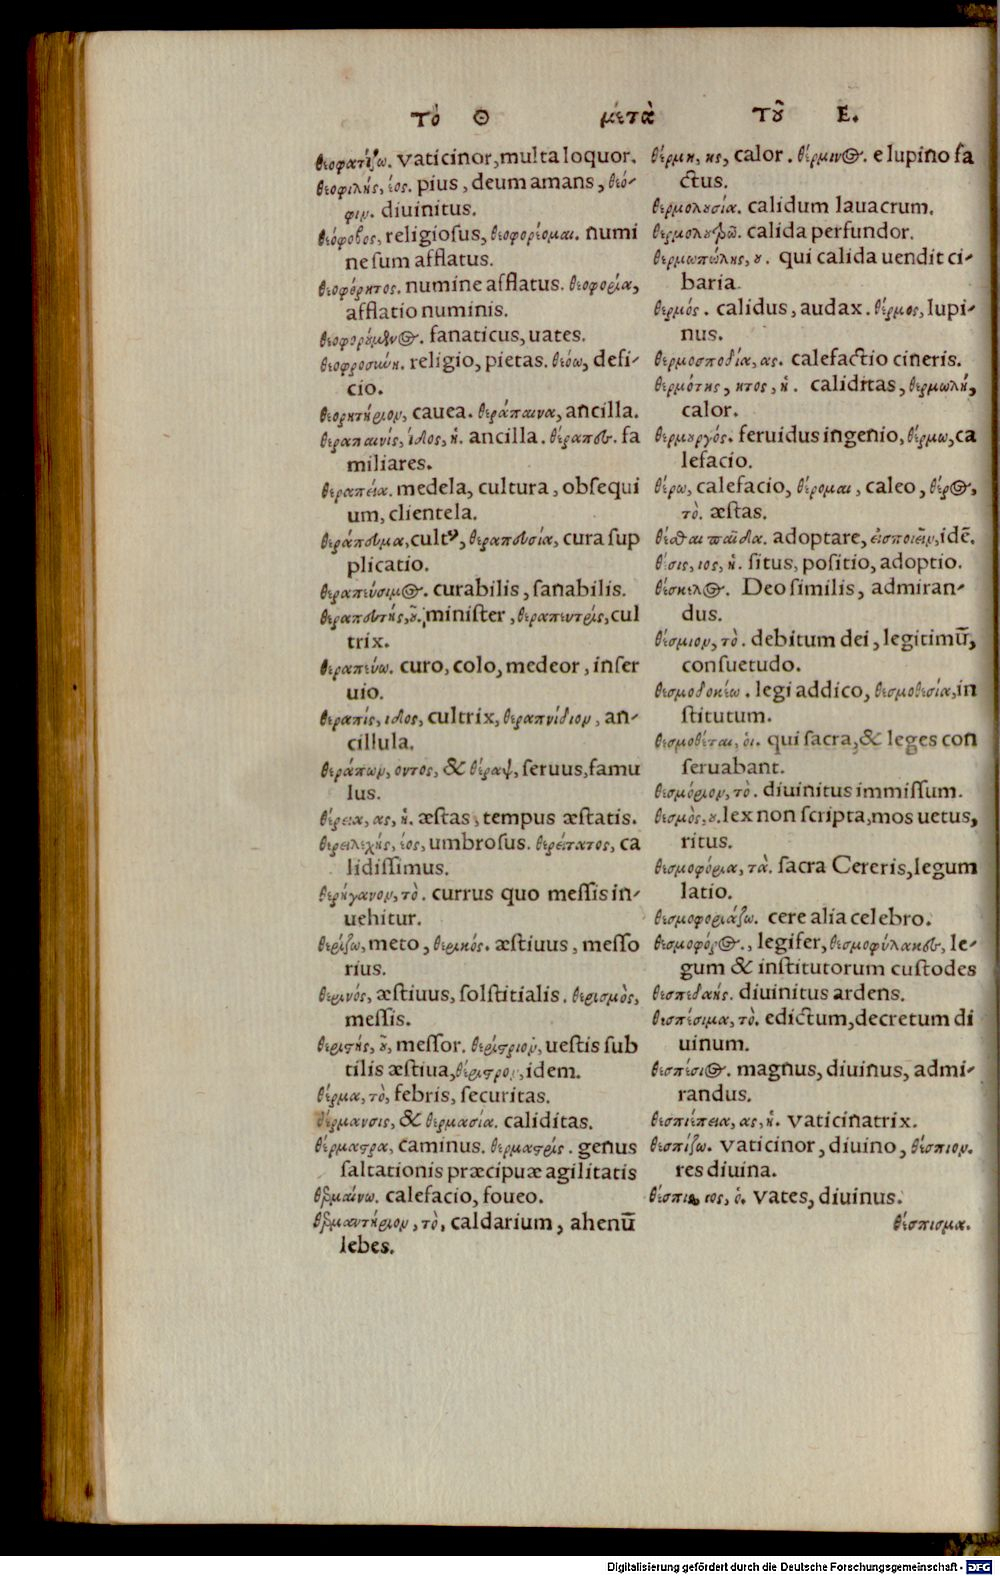 τὸ Θ μετὰ τοῦ Ε.
θεοφατίζω. vaticinor, multa loquor.
θεοφιλής, έος. pius, deum amans, θεό-
φιν. diuinitus.
θεόφοβος, religiosus, θεοφορέομαι. numi
ne sum afflatus.
θεοφόρητος. numine afflatus. θεοφορία,
afflatio numinis.
θεοφορούμενος. fanaticus, uates.
θεοφροσύνη. religio, pietas. θεόω, defi-
cio.
θεορητήριον, cauea. θεράπαινα, ancilla.
θεραπαινίς, ίδος, ἡ. ancilla. θέραπες. fa
miliares.
θεραπεία. medela, cultura, obsequi
um, clientela.
θεράπευμα, cultꝰ, θεραπευσία, cura sup
plicatio.
θεραπεύσιμος. curabilis, sanabilis.
θεραπευτής, οῦ. minister, θεραπευτρίς, cul
trix.
θεραπεύω. curo, colo, medeor, inser
uio.
θεραπίς, ιδος, cultrix, θεραπνίδιον, an-
cillula.
θεράπων, οντος, & θέραψ, seruus, famu
lus.
θέρεια, ας, ἡ. æstas, tempus æstatis.
θερειλεχής, έος, umbrosus. θερείτατος, ca
lidissimus.
θερήγανον, τὸ. currus quo messis in-
uehitur.
θερίζω, meto, θερικός. æstiuus, messo
rius.
θερινός, æstiuus, solstitialis. θερισμὸς,
messis.
θεριστής, οῦ, messor. θερίστριον, uestis sub
tilis æstiua, θέριστρον, idem.
θέρμα, τὸ, febris, securitas.
θέρμανσις, & θερμασία. caliditas.
θέρμαστρα, caminus. θερμαστρίς. genus
saltationis præcipuæ agilitatis
θερμαίνω. calefacio, foueo.
θερμαντήριον, τὸ, caldarium, ahenū
lebes.
θέρμη, ης, calor. θέρμινος. e lupino fa
ctus.
θερμολουσία. calidum lauacrum.
θερμολουτρῶ. calida perfundor.
θερμωπώλης, ου. qui calida uendit ci-
baria.
θερμός. calidus, audax. θέρμος, lupi-
nus.
θερμοσποδία, ας. calefactio cineris.
θερμότης, ητος, ἡ. caliditas, θερμωλή,
calor.
θερμουργός. feruidus ingenio, θέρμω, ca
lefacio.
θέρω, calefacio, θέρομαι, caleo, θέρος,
τὸ. æstas.
θέσθαι παῖδα. adoptare, εἰσποιεῖν, idē.
θέσις, ιος, ἡ. situs, positio, adoptio.
θέσκελος. Deo similis, admiran-
dus.
θέσμιον, τὸ. debitum dei, legitimū,
consuetudo.
θεσμοδοκέω. legi addico, θεσμοθεσία, in
stitutum.
θεσμοθέται, οἱ. qui sacra, & leges con
seruabant.
θεσμόριον, τὸ. diuinitus immissum.
θεσμὸς, ου. lex non scripta, mos uetus,
ritus.
θεσμοφόρια, τὰ. sacra Cereris, legum
latio.
θεσμοφοριάζω. cere alia celebro.
θεσμοφόρος., legifer, θεσμοφύλακες, le-
gum & institutorum custodes
θεσπιδαής. diuinitus ardens.
θεσπέσιμα, τὸ. edictum, decretum di
uinum.
θεσπέσιος. magnus, diuinus, admi-
randus.
θεσπιέπεια, ας, ἡ. vaticinatrix.
θεσπίζω. vaticinor, diuino, θέσπιον.
res diuina.
θέσπις, ιος, ὁ. vates, diuinus.
θέσπισμα.
Digitalisierung gefördert durch die Deutsche Forschungsgemeinschaft - DFG